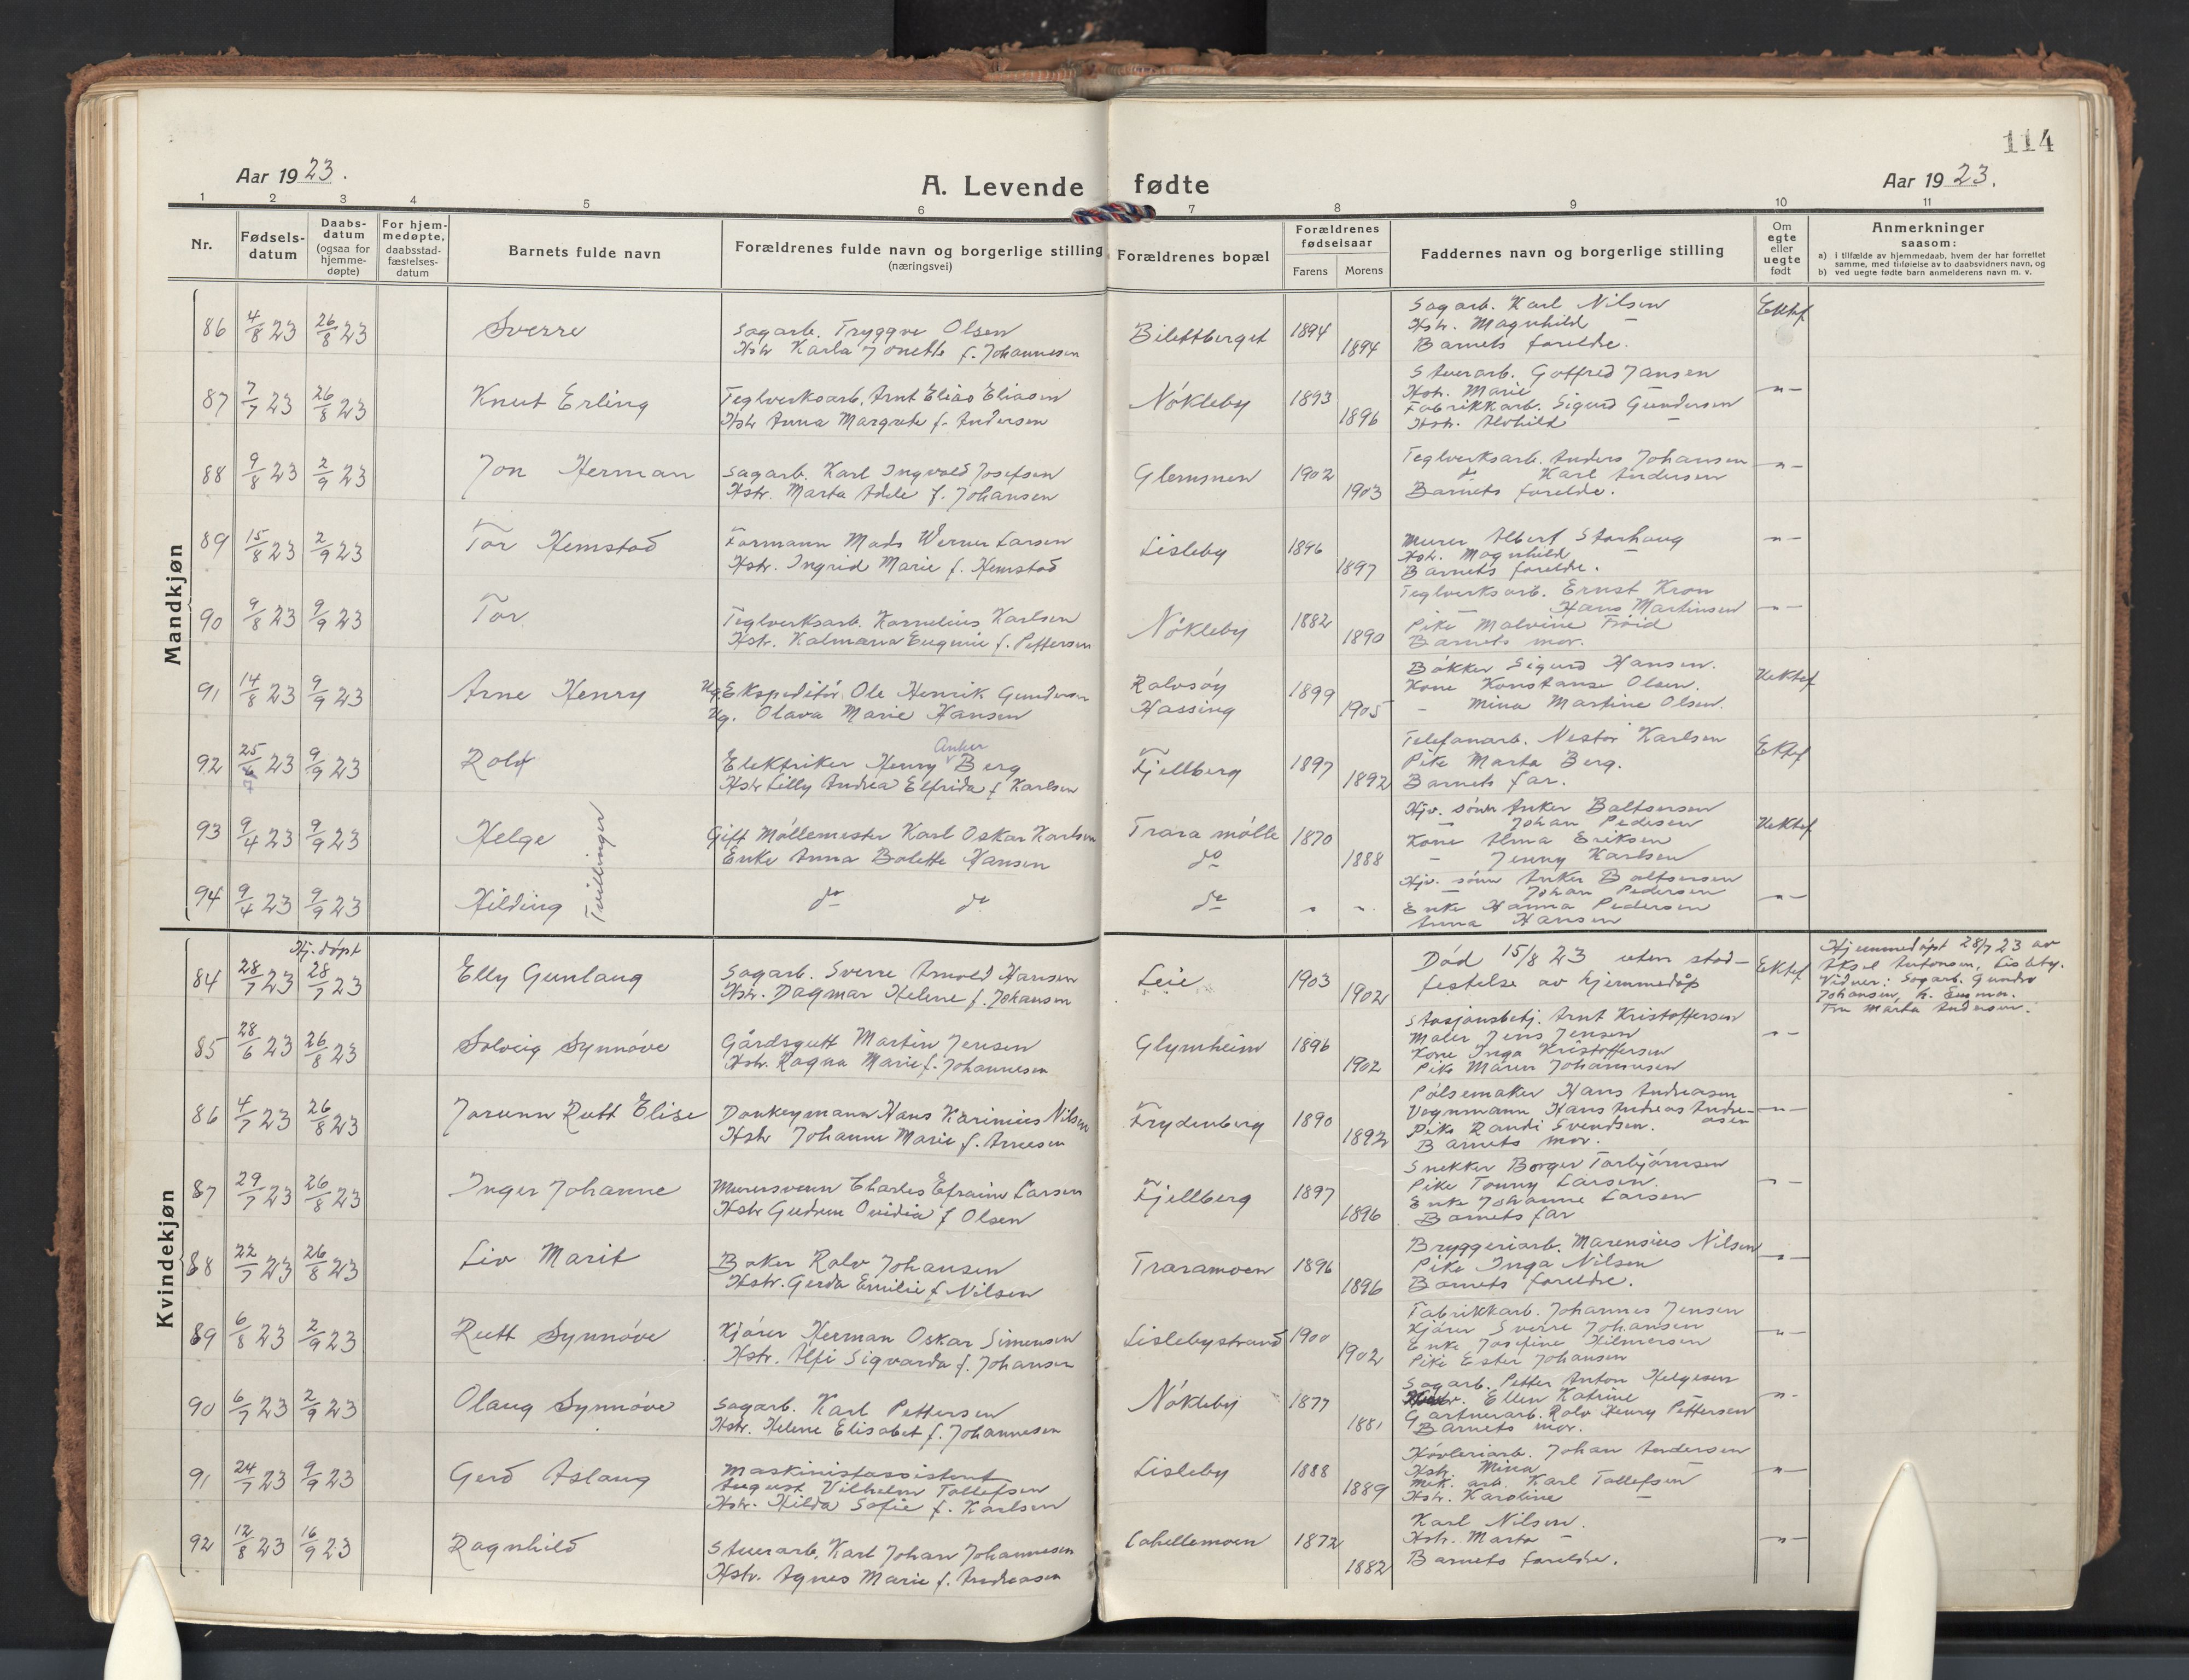 114
Aar 1923.
A. Levende fødte
Aar 1923.
1 2 3 4 5 6 7 8 9 10 11
Nr.
Fødsels-
datum
Daabs-
datum
(ogsaa for
hjemme-
døpte)
For hjem-
medøpte,
daabsstad-
fæstelses-
datum
Barnets fulde navn
Forældrenes fulde navn og borgerlige stilling
(næringsvei)
Forældrenes bopæl
Forældrenes
fødselsaar
Farens Morens
Faddernes navn og borgerlige stilling
Om
egte
eller
uegte
født
Anmerkninger
saasom:
a) i tilfælde av hjemmedaab, hvem der har forrettet
samme, med tilføielse av to daabsvidners navn, og
b) ved uegte fødte barn anmelderens navn m. v.
Mandkjøn
86 4/8 23 26/8 23 Sverre
Sagarb. Tryggve Olsen
Hstr Karla Jonette f. Johannesen
Bilettberget 1894 1894
Sagarb. Karl Nilsen
Hstr. Magnhild —
Barnets foreldre.
Ektef
87 7/7 23 26/8 23 Knut Erling
Teglverksarb. Arnt Elias Eliasen
Hstr Anna Margrete f. Andersen
Nökleby 1893 1896
Stuerarb. Gotfred Jansen
Hstr. Marie —
Fabrikkarb. Sigurd Gundersen
Hstr. Alvhild —
—"—
88 9/8 23 2/9 23 Jon Herman
Sagarb. Karl Ingvald Josefsen
Hstr. Marta Adele f. Johansen
Glemmen 1902 1903
Teglverksarb. Anders Johansen
do Karl Andersen
Barnets foreldre.
—"—
89 15/8 23 2/9 23 Tor Hemstad
Formann Mads Werner Larsen
Hstr. Ingrid Marie f. Hemstad
Lisleby 1896 1897
Murer Albert Storhaug
Hstr. Magnhild —
Barnets foreldre.
—"—
90 9/8 23 9/9 23 Tor
Teglverksarb. Kornelius Karlsen
Hstr. Kalmara Eugenie f. Pettersen
Nökleby 1882 1890
Teglverksarb. Ernst Kron
— Hans Martinsen
Pike Malvine Fröid
Barnets mor.
—"—
91 14/8 23 9/9 23 Arne Henry
Ug Ekspeditör Ole Henrik Gundersen
Ug. Olava Marie Hansen
Rolvsöy
Hassing
1899 1905
Bökker Sigurd Hansen.
Kone Konstanse Olsen.
— Mina Martine Olsen.
Uektef
92 25/6 23 9/9 23 Rolf
7
Anker
Elektriker Henry Berg
Hstr Lilly Andrea Elfrida f Karlsen
Fjellberg 1897 1892
Telefonarb. Nestor Karlsen
Pike Marta Berg.
Barnets far.
Ektef
93 9/4 23 9/9 23 Helge
Tvillinger
Gift Möllemester Karl Oskar Karlsen
Enke Anna Bolette Hansen
Trara mölle
do
1870 1888
Hjv. sönn Anker Baltsersen
— Johan Pedersen
Kone Alma Eriksen
— Jenny Karlsen
Uektef
94 9/4 23 9/9 23 Hilding
do do
do " "
Hjv. sönn Anker Baltsersen
— Johan Pedersen
Enke Hanna Pedersen
Anna Hansen
—"—
Kvindekjøn
Hj. döpt
84 28/7 23 28/7 23 Elly Gunlaug
Sagarb. Sverre Arnold Hansen
Hstr. Dagmar Helene f. Johansen
Leie 1903 1902
Död 15/8 23 uten stad-
festelse av hjemmedöp
Ektef
Hjemmedöpt 28/7 23 av
Aksel Antonsen, Lisleby.
Vidner: Sagarb. Gunder
Johansen,
Fru Marta Andersen.
85 28/6 23 26/8 23 Solveig Synnöve
Gårdsgutt Martin Jensen
Hstr. Ragna Marie f. Johannesen
Glymheim 1896 1902
Stasjonsbetj. Arnt Kristoffersen
Maler Jens Jensen
Kone Inga Kristoffersen
Pike Maren Johannesen
—"—
86 4/7 23 26/8 23 Jorunn Rutt Elise
Donkeymann Hans Karinius Nilsen
Hstr Johanne Marie f. Arnesen
Frydenberg 1890 1892
Pölsemaker Hans Andreasen
Vognmann Hans Andreas Andre-
asen
Pike Randi Svendsen.
Barnets mor.
—"—
87 29/7 23 26/8 23 Inger Johanne
Murersvenn Charles Efraim Larsen
Hstr Gudrun Ovidia f Olsen
Fjellberg 1897 1896
Snekker Borger Torbjörnsen
Pike Tonny Larsen.
Enke Johanne Larsen
Barnets far
—"—
88 22/7 23 26/8 23 Liv Marit
Baker Rolv Johansen
Hstr. Gerda Emilie f Nilsen
Traramoen 1896 1896
Bryggeriarb. Marensius Nilsen
Pike Inga Nilsen
Barnets foreldre.
—"—
89 6/8 23 2/9 23 Rutt Synnöve
Kjörer Herman Oskar Simensen
Hstr. Alfi Sigvarda f. Johansen
Lislebystrand 1900 1902
Fabrikkarb. Johannes Jensen
Kjörer Sverre Johansen
Enke Josefine Hilmersen
Pike Ester Johansen
—"—
90 6/7 23 2/9 23 Olaug Synnöve
Sagarb. Karl Pettersen
Hstr. Helene Elisabet f. Johannesen
Nökleby 1877 1881
Sagarb. Petter Anton Helgesen
Hstr. Ellen Katrine —
Gartnerarb. Rolv Henry Pettersen
Barnets mor.
—"—
91 24/7 23 9/9 23 Gerd Aslaug
Maskinistassistent
August Vilhelm Tollefsen
Hstr. Hilda Sofie f. Karlsen
Lisleby 1888 1889
Hövleriarb. Johan Andersen
Hstr. Mina —
Mek. arb. Karl Tollefsen
Hstr. Karoline —
—"—
92 12/8 23 16/9 23 Ragnhild
Stuerarb. Karl Johan Johannesen
Hstr. Agnes Marie f. Andreasen
Labellemoen 1872 1882
Karl Nilsen.
Hstr. Marta —
Barnets foreldre.
—"—